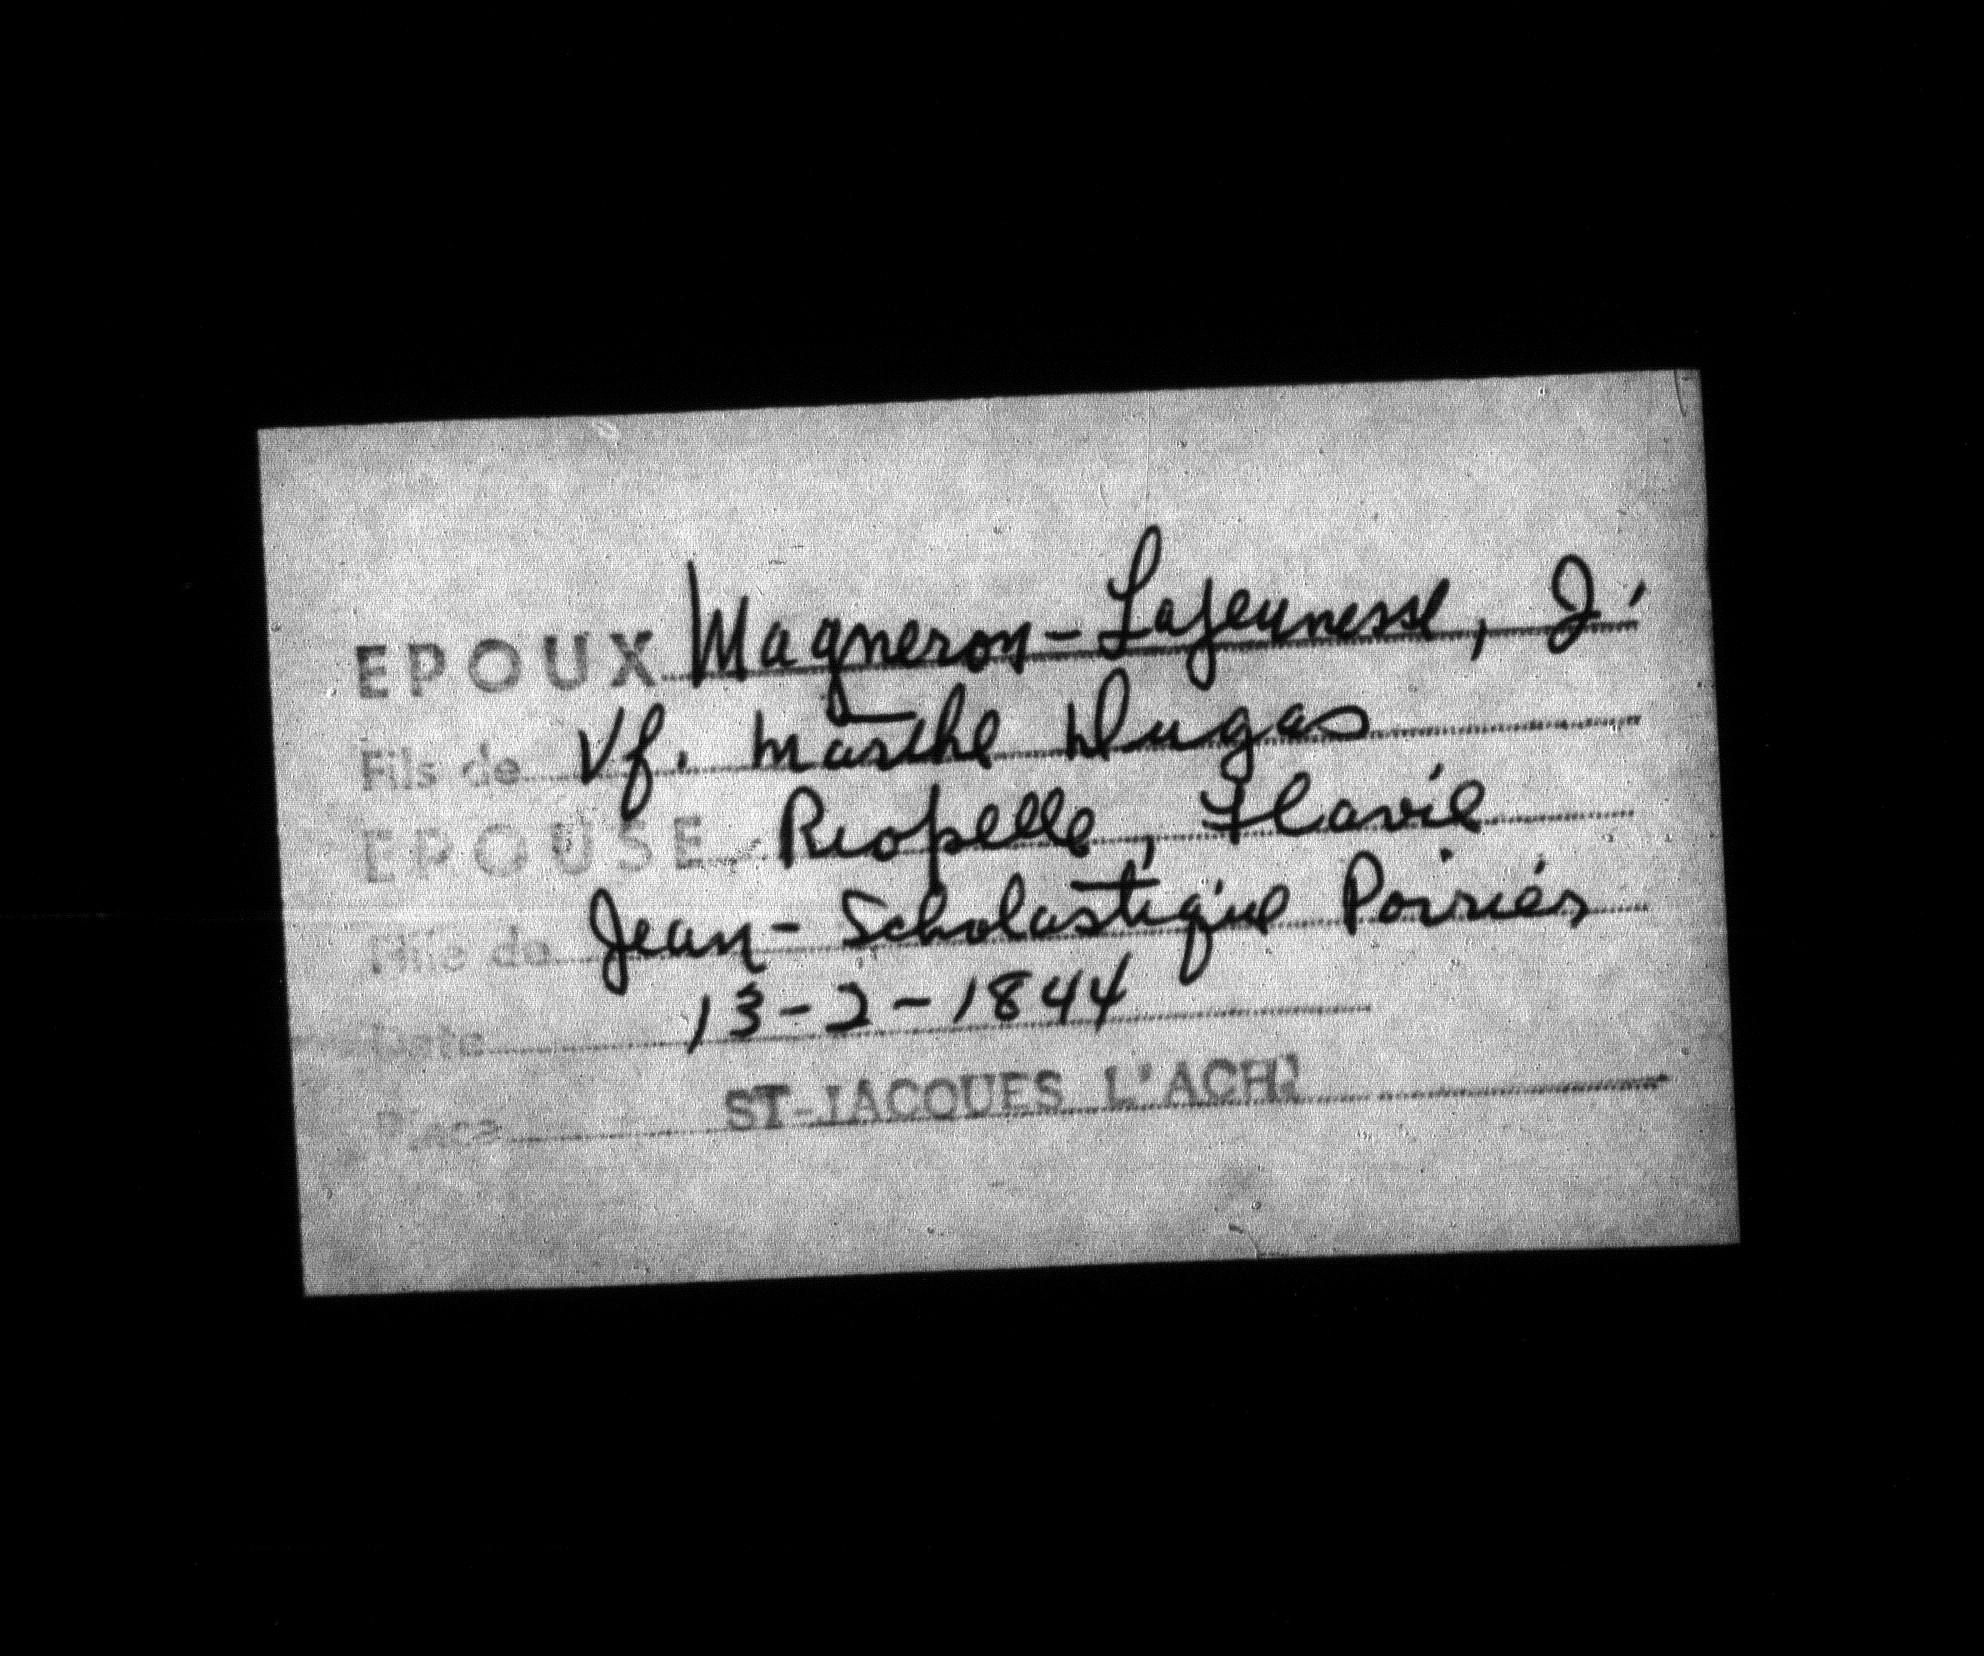 EPOUX Magneron-Lajeunesse, J.
Fils de Vf. Marthe Dugas
EPOUSE Riopelle, Flavie
Fille de Jean - Scholastique Poirier
Date 13-2-1844
Place ST-JACQUES L'ACH.